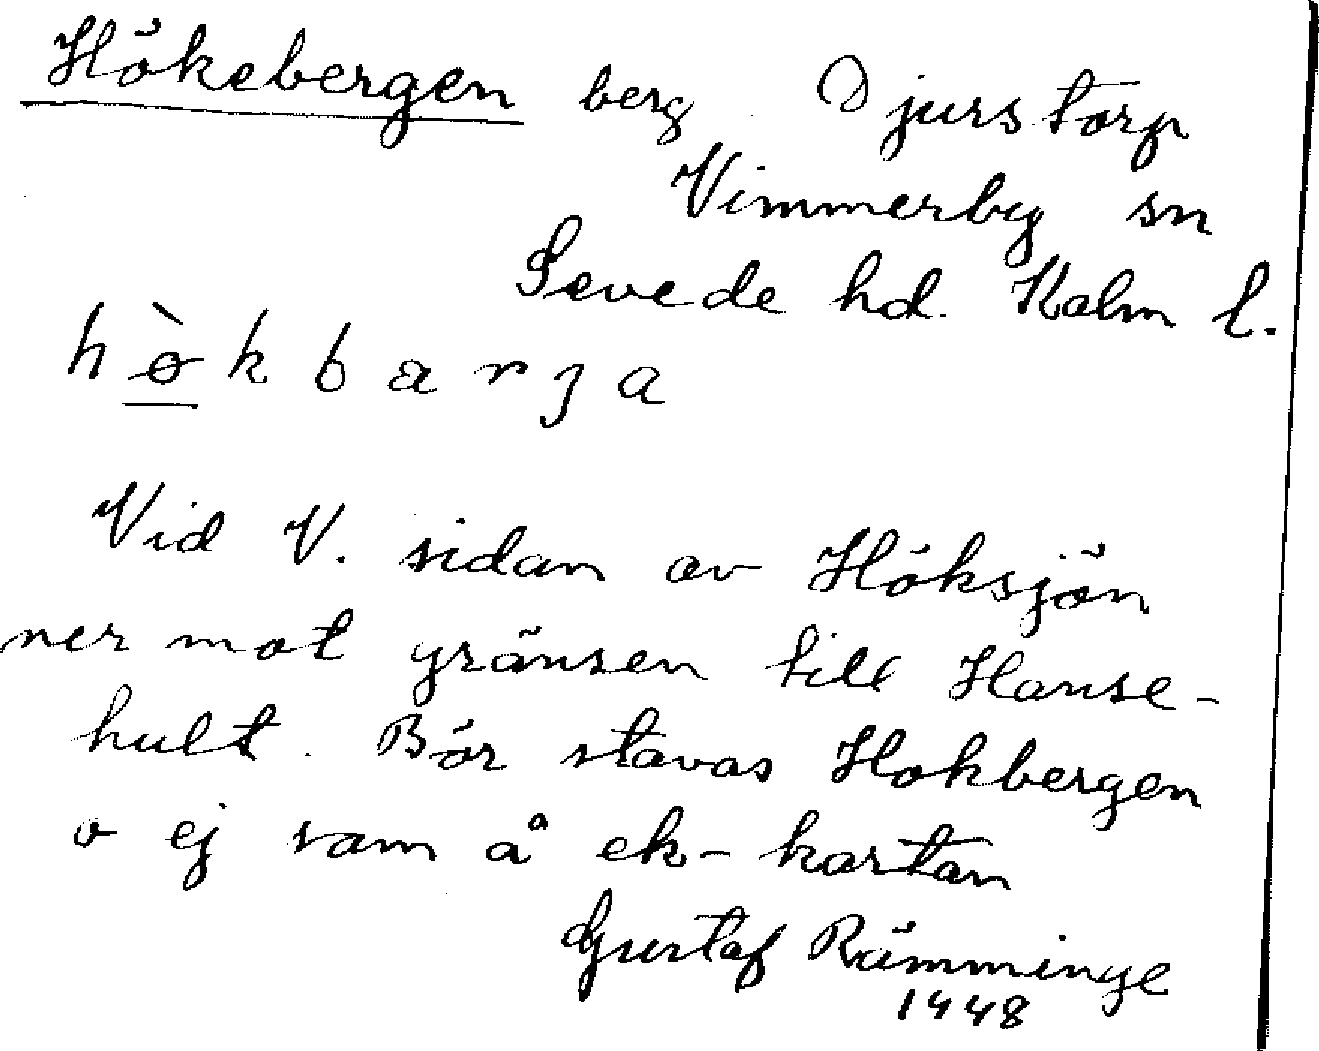 Hökebergen berg Djurstorp
Vimmerby sn
Sevede hd. Kalm l.
hø̀kbarja
Vid V. sidan av Höksjön
ner mot gränsen till Hanse-
hult. Bör stavas Hökbergen
o ej som å ek-kartan
Gustaf Rämminge
1948